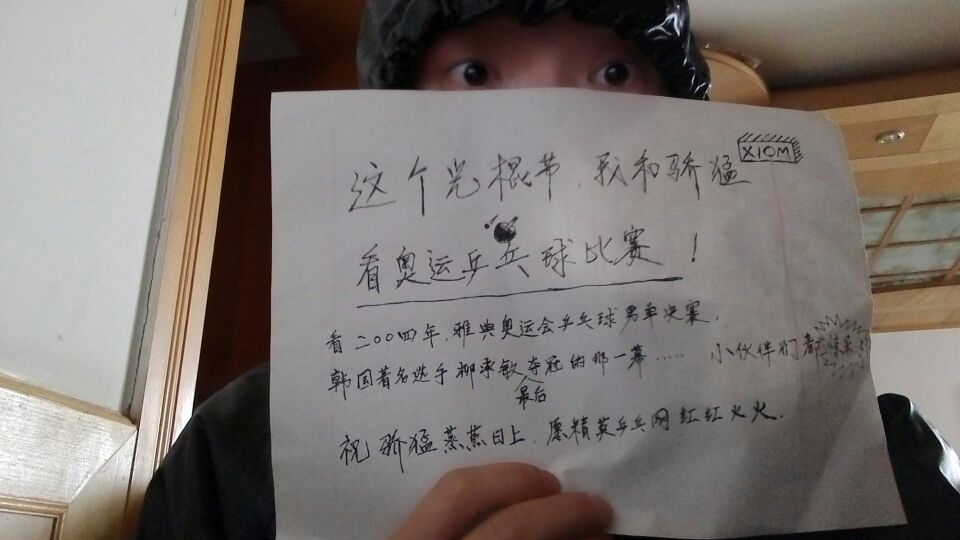 这个光棍节，我和骄猛
XIOM
看奥运乒乓球比赛！
看二00四年，雅典奥运会乒乓球男单决赛，
韩国著名选手柳承敏夺冠的那一幕…… 小伙伴们都惊呆了
最后
祝骄猛蒸蒸日上，愿精英乒乓网红红火火.